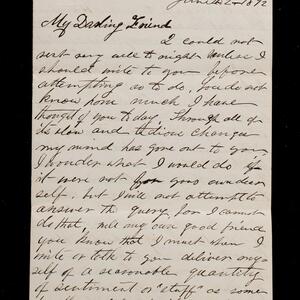 June 12-1892
My Darling Friend
I could not
rest very well to night unless I
should write to you before
attempting so to do, you do not
know how much I have
thought of you to day, through all of
its slow and tedious changes
my mind has gone out to you
I wonder what I would do if
it were not for your own dear
self, but I will not attempt to
answer the query, for I cannot
do that, well my own good friend
you know that I must when I
write or talk to you deliver my-
self of a reasonable quantity
of sentiment or "stuff" as some